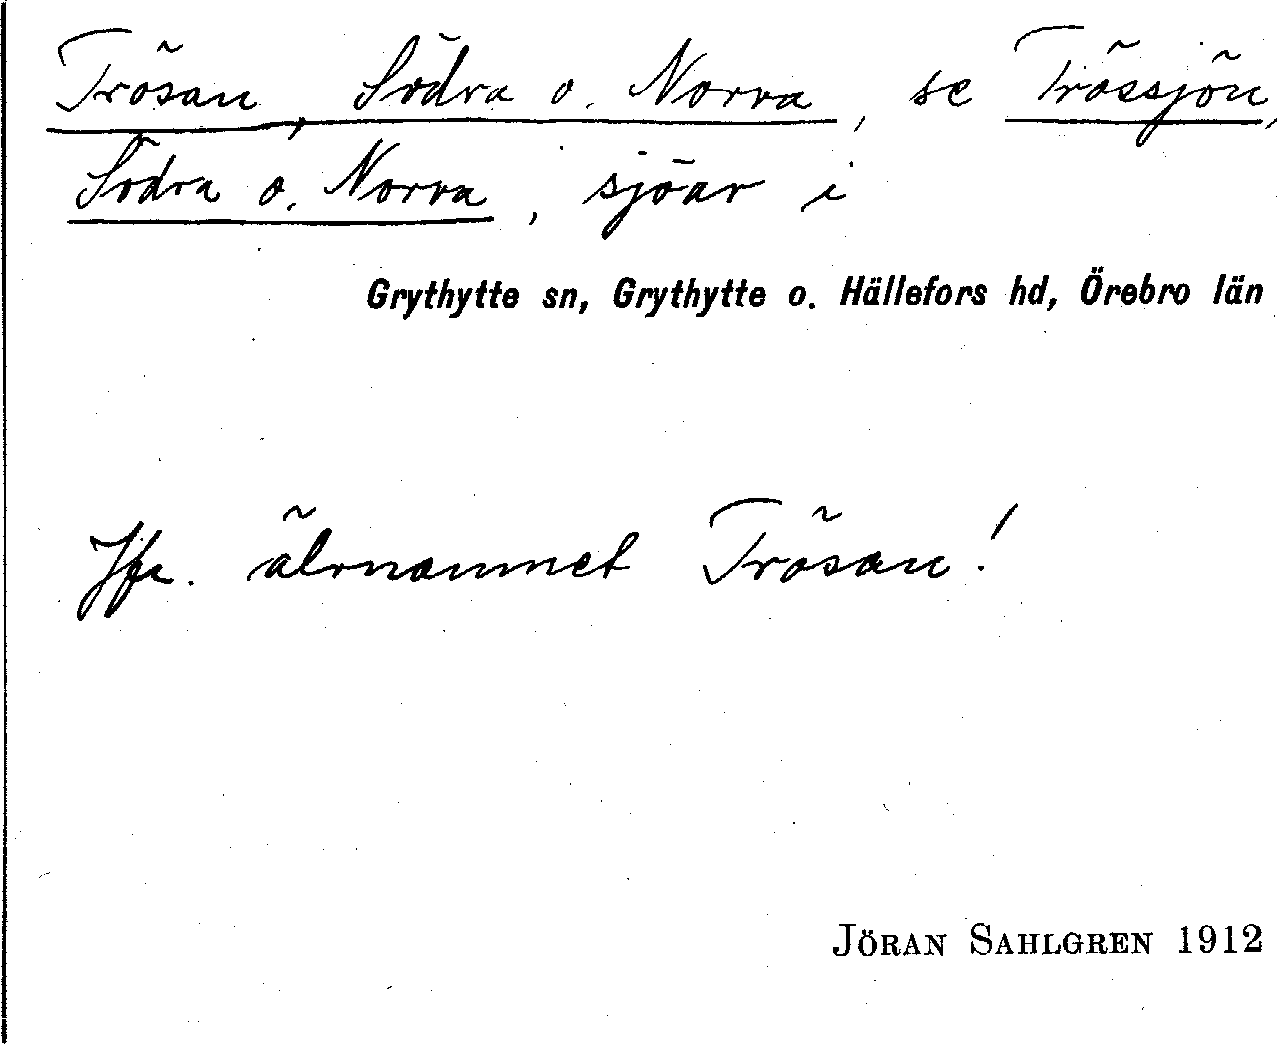 Trösan, Södra o. Norra, se Trössjön,
Södra o. Norra, sjöar i
Grythytte sn, Grythytte o. Hällefors hd, Örebro län
Jfr. älvnamnet Trösan!
JÖRAN SAHLGREN 1912